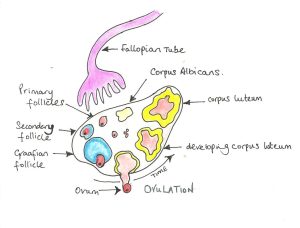 Fallopian Tube
Corpus Albicans.
Primary
follicles
corpus luteum
Secondary
follicle
Graafian
follicle
developing corpus luteum
TIME
Ovum
OVULATION